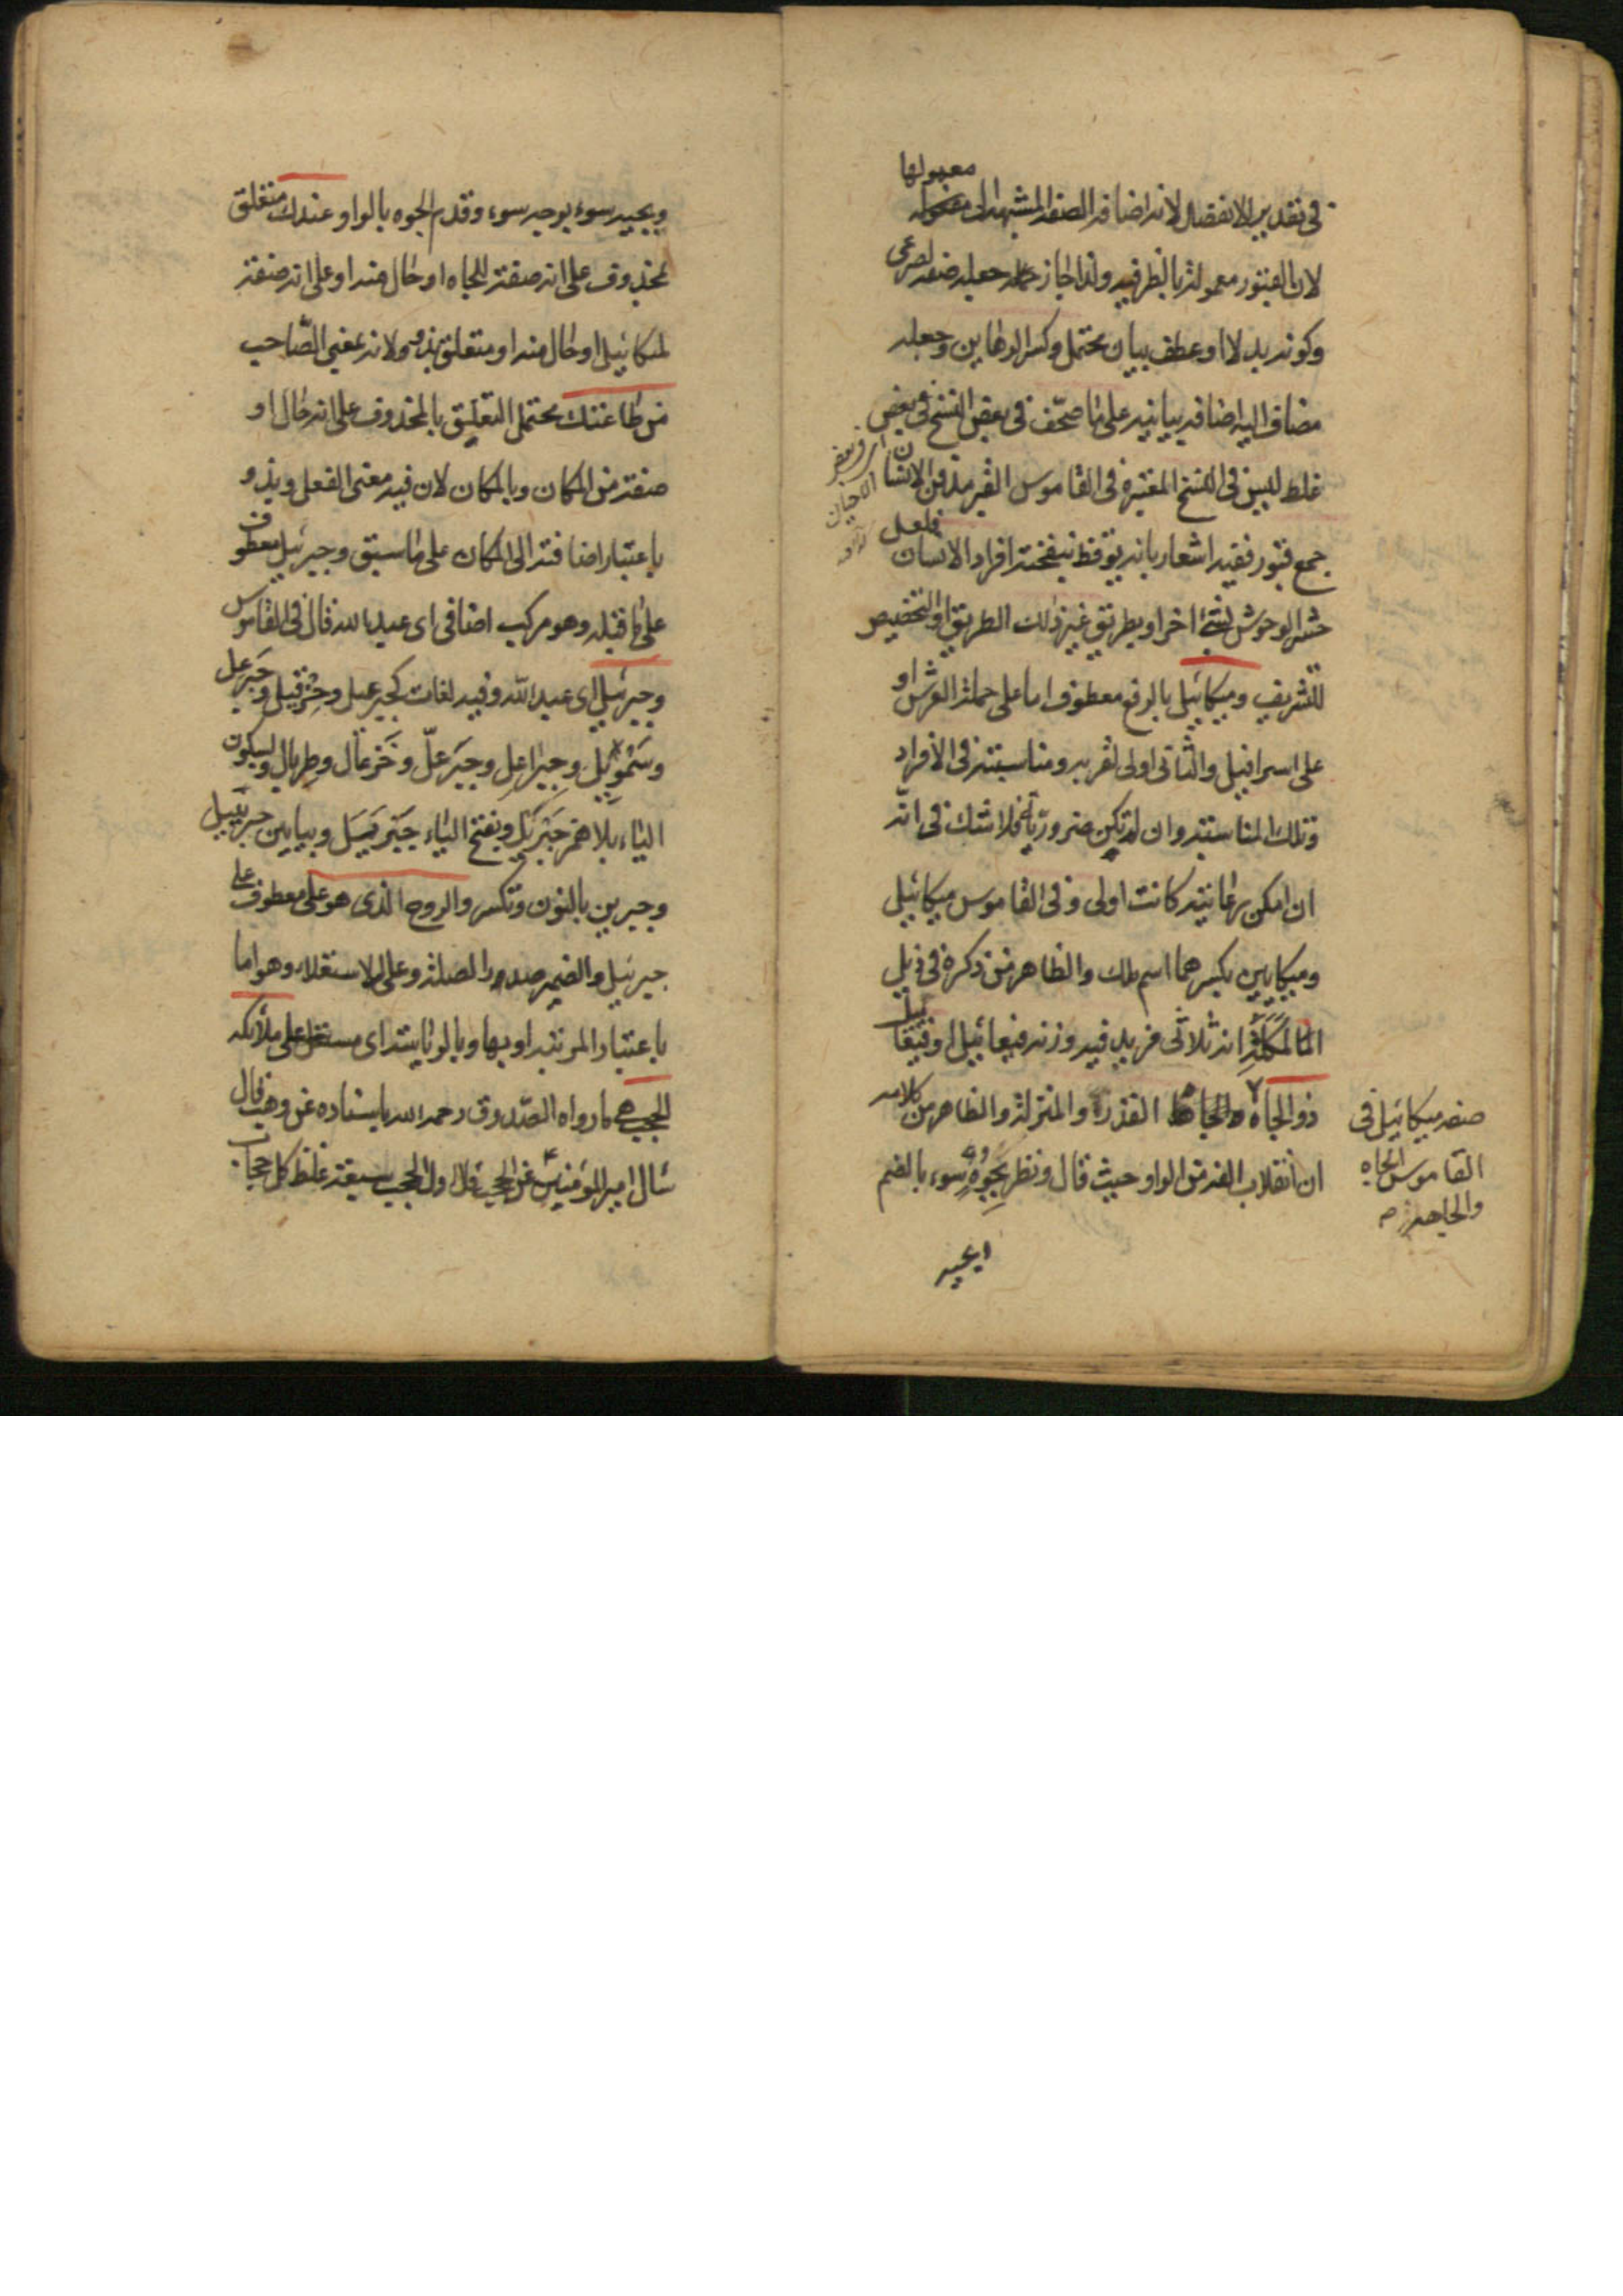 معمولها
في تقدير الانفصال لانه اضافة الصفة المشبهة الى
لان القبور معمولة بالظرفية ولذا جاز جعله صفة لصرعى
وكونه بدلا او عطف بيان يحتمل وكسر الرهاين وجعله
مضاف اليه اضافة بيانية على ما صحف في بعض النسخ في بعض
غلط ليس في النسخ المعتبرة في القاموس القبر مدفن الانسان
جمع قبور ففيه اشعار بانه يوقظ بنفخته افراد الانسان فلعل
حشر الوحوش لشئ اخر او بطريق غير ذلك الطريق او التخصيص
للتشريف وميكائيل بالرفع معطوف اما على حملة العرش او
على اسرافيل والثاني اولى لقربه ومناسبته في الأفراد
وتلك المناسبة وان لم تكن ضرورية فلا شك في انه
ان امكن رعايته كانت اولى وفي القاموس ميكائيل
وميكايين بكسرهما اسم ملك والظاهر من ذكره في ذيل
انه ثلاثي مزيد فيه وزنه فيعائيل او فيقائيل
ذو الجاه القدر والمنزلة والظاهر من كلامه
ان انقلاب الفه من الواو حيث قال ونظر بجوه سوء بالضم
صفة ميكائيل في
القاموس الجاه
والجاهة
وبجيه سوء بوجه سوء وقدم الجوه بالواو عندك متعلق
بمحذوف على انه صفة للجاه او حال منه او على انه صفة
لميكائيل او حال منه او متعلق بذو ولانه بمعنى الصاحب
من طاعتك يحتمل التعليق بالمحذوف على انه حال او
صفة من المكان وبالمكان لان فيه معنى الفعل وبذو
باعتبار اضافته الى المكان على ما سبق وجبرئيل معطوف
على ما قبله وهو مركب اضافي اى عبد الله قال في القاموس
وجبرئيل اى عبد الله وفيه لغات كجبرعيل وحزقيل وجبرعل
وسمويل وجبراعل وجبرعلّ وخزعال وطربال وبسكون
الياء بلا همز جبريل وبفتح الياء جبريَيل وبيايين جبرييل
وجبرين بالنون وتكسر والروح الذى هو على معطوف على
جبرئيل والضمير صدر الصلة وعلى للاستعلاء وهو اما
باعتبار المرتبة او بهما وبالرياسة اى مستعل على ملائكة
الحجب هى ما رواه الصدوق رحمه الله باسناده عن وهب قال
سال امير المؤمنين ع عن الحجب قال اول الحجب سبعة غلظ كل حجاب